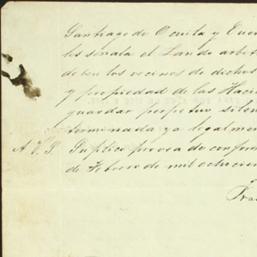 Santiago de Ocuila y Euo
les señala el Lau de arbit
deben los vecinos de dichos
y propiedad de las Haci
guardar perpetuo silen
terminada ya legalmen
A V. S. Suplico provea de confor
de Febrero de mil ochocien